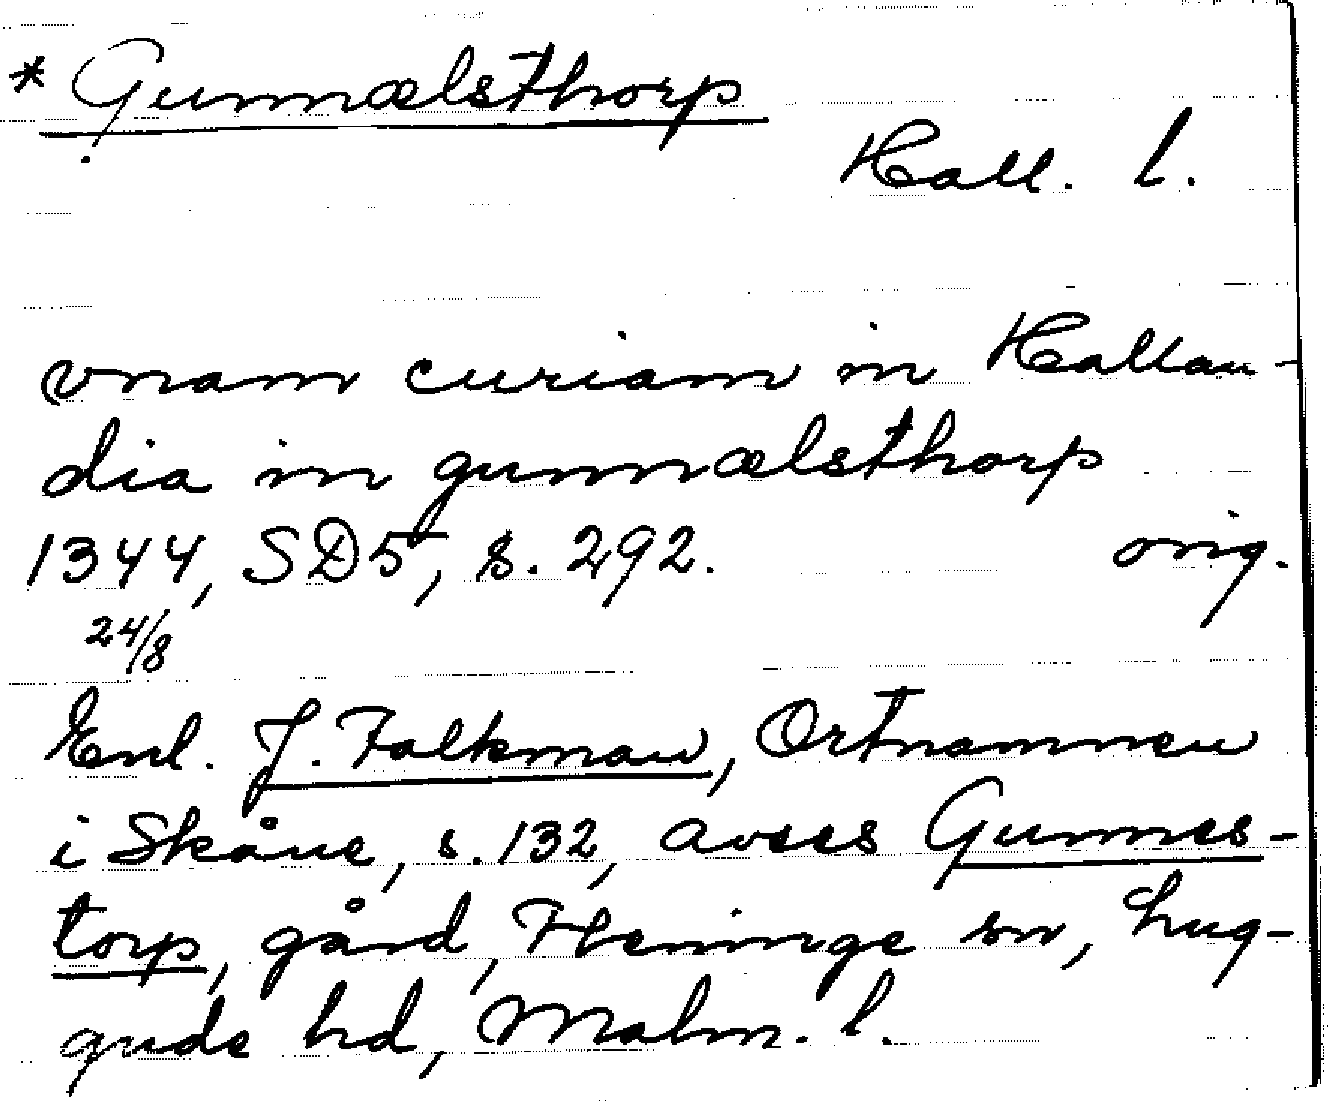 * Gunnælsthorp
Hall. l.
vnam curiam in Hallan-
dia in gunnælsthorp
1344, SD5, s. 292. orig.
24/8
Enl. J. Falkman, Ortnamnen
i Skåne, s. 132, avses Gunnes-
torp, gård, Fleninge sn, Lug-
gude hd, Malm. l.